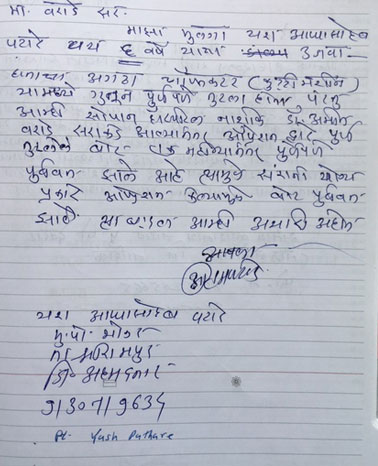 मा. वराडे सर.
माझा मुलगा यश आप्पासाहेब
पटारे वय ६ वर्ष याचा उजवा
हाताचा अंगठा चॉपकटर (कुट्टी मशीन)
यामध्ये गुंतून पुर्णपणे तुटला होता, परंतु
आम्ही सोपान हॉस्पिटल नाशिक डॉ. अमोल
वराडे सरांकडे आल्यानंतर ऑपरेशन द्वारे पुर्ण
तुटलेले बोट एक महिन्यानंतर पुर्णपणे
पुर्ववत झाले आहे त्यामुळे सरांनी योग्य
प्रकारे ऑपरेशन केल्यामुळे बोट पुर्ववत
झाले त्याबद्दल आम्ही आभारी आहोत
आपला
यश आप्पासाहेब पटारे
मु. पो. भोकर
ता. श्रीरामपुर
जि. अहमदनगर
9130719634
Pt. Yash Pathare